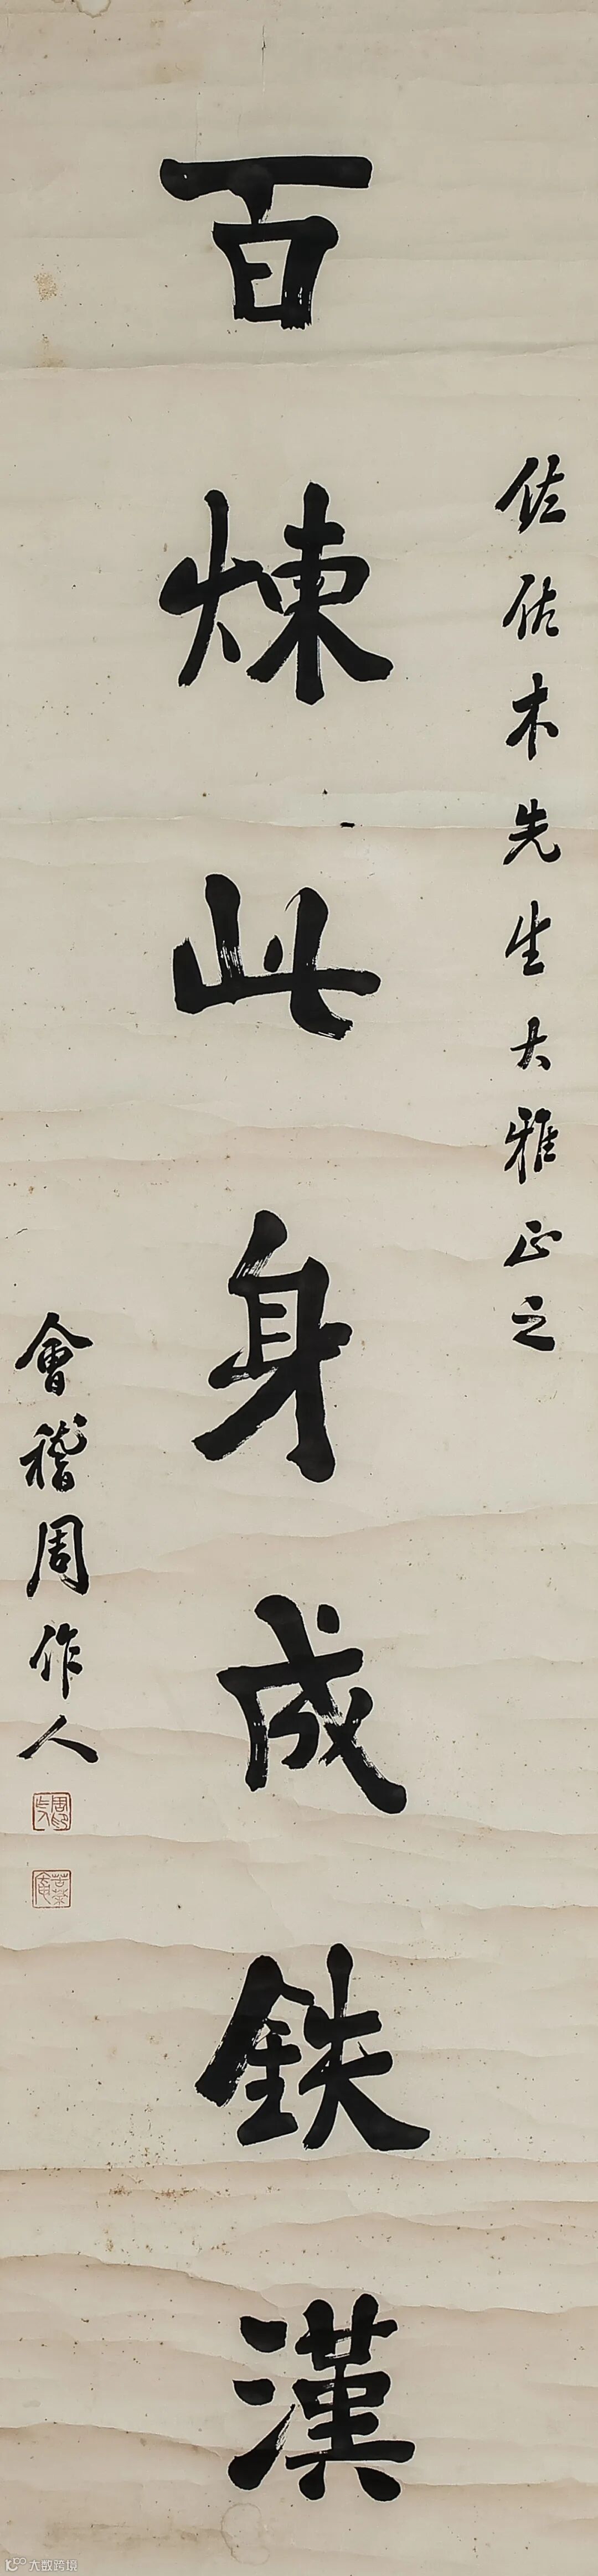 佐佑木先生大雅正之
百煉此身成鉄漢
會稽周作人
周作人
苦茶庵
大数跨境